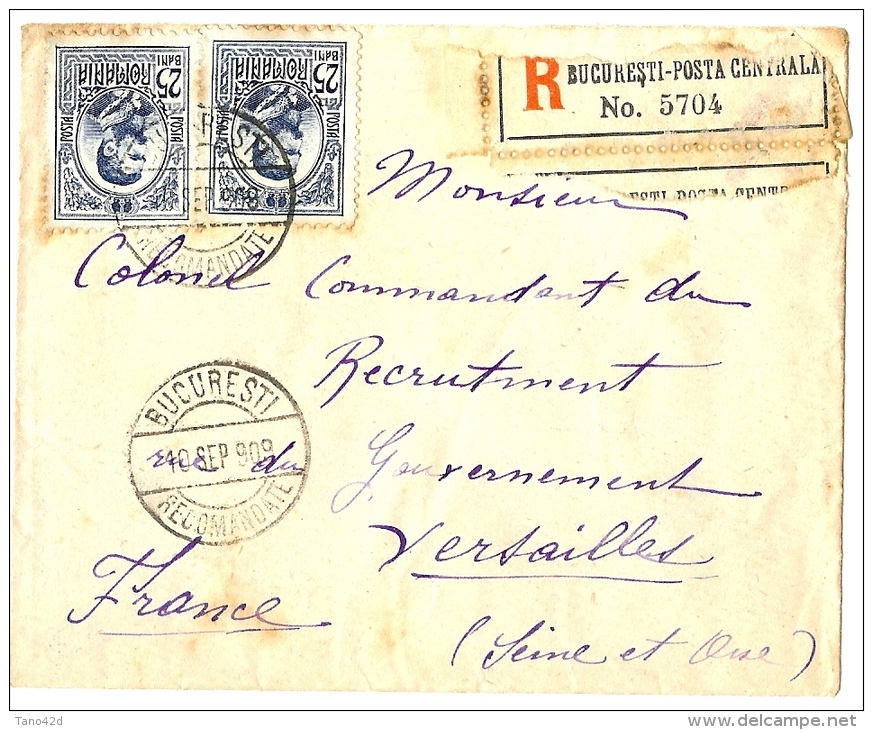 25 BANI ROMANIA POSTA
25 BANI ROMANIA POSTA
R BUCUREȘTI-POSTA CENTRALA
No. 5704
SEP 908
RECOMANDATE
Monsieur
Colonel Commandant du
Recrutment
BUCURESTI
10 SEP 908
RECOMANDATE
rue du Gouvernement
Versailles
France
(Seine et Oise)
Tano42d
www.delcampe.net